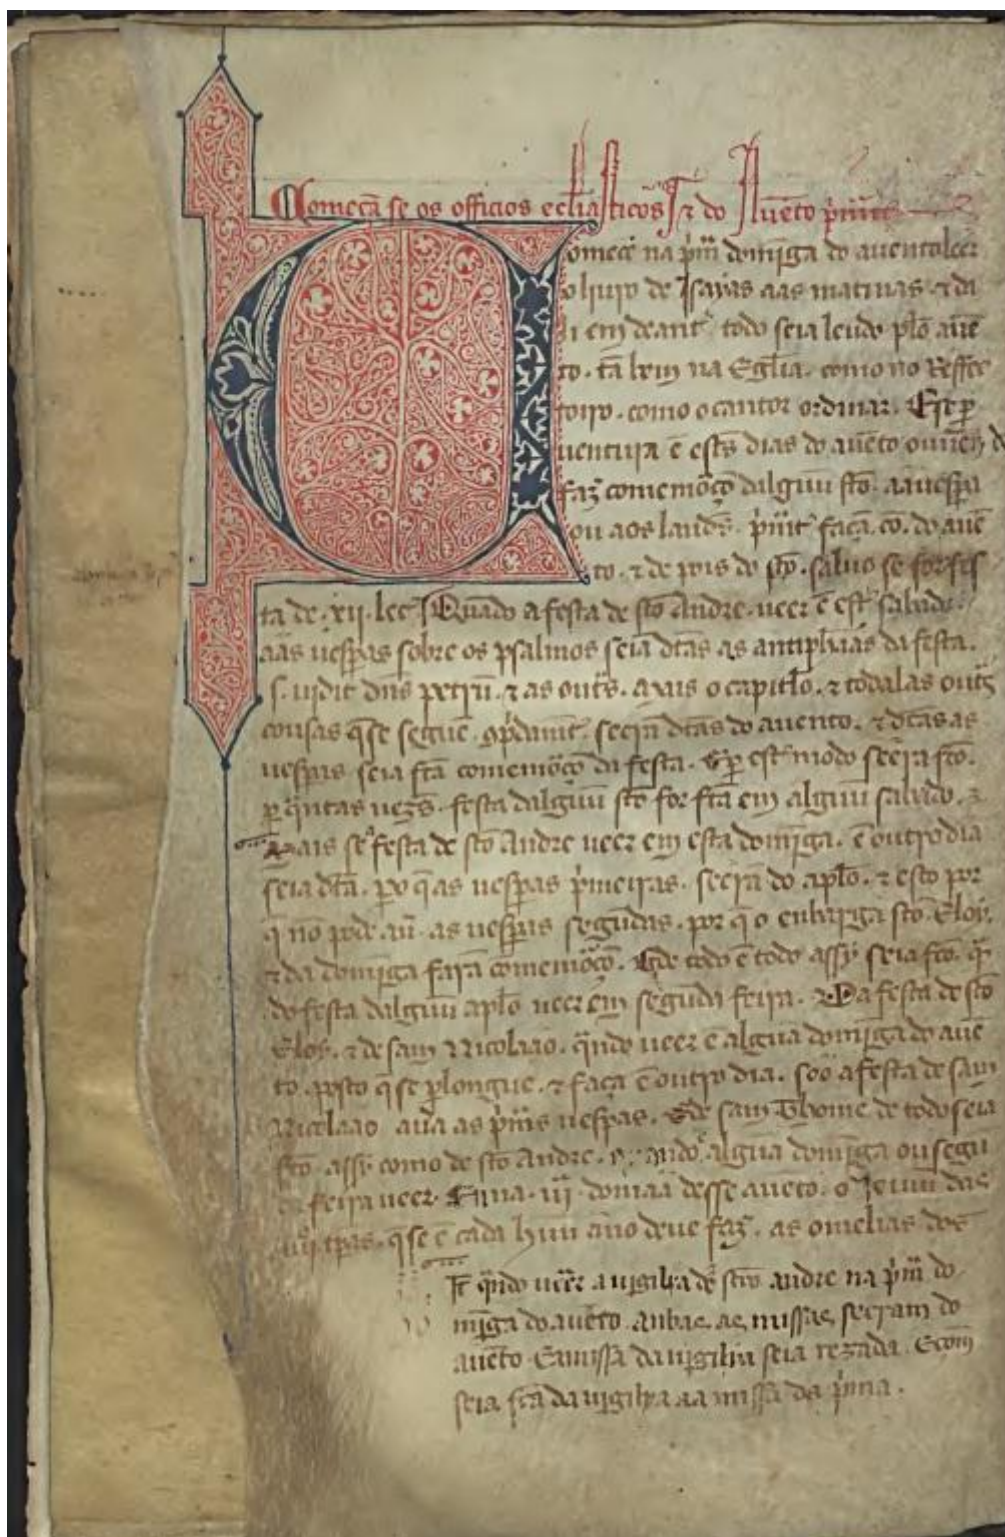 Começã se os officios eclĩasticos ⁊ do Auẽto
omece na pͥmͣ domĩga do auento leer
o liuro de Isaias aas matinas ⁊ da
li em deantͤ todo seia leudo plo auẽ
to. tã bem na Egłia. como no Reffer
toiro. como o cantor ordinar. E se ꝑ
uentura ẽ estˢ dias do auẽto
fazͬ comemoͣçõ dalgũu sto. aauespͣa
ou aos laudˢ. pͥmͭ façã. cõ. do auẽ
to. ⁊ de pois do sto. saluo se for fes
ta de .xii. lec Quãdo a festa de sto Andre. ueer ẽ estͤ sabado
aas uesꝑas sobre os psalmos seiã dctas as antiphãas da festa.
s. uidit dñs petrũ. ⁊ as outͣs. Mais o capitlo. ⁊ todalas outͣs
cousas q̃ se seguẽ secrã dctas do auento. ⁊ dctas as
uesꝑas seia fcta comemoͣçõ da festa. E ꝑ estͤ modo seera fcto.
ꝑ qͣntas uezˢ. festa dalgũu sto for fcta em algũu sabado.
Mais se a festa de sto Andre ueer em esta domĩga. ẽ outro dia
seia dcta. ꝑo q̃ as uesꝑas pͥmeiras. seerã do aplo. ⁊ esto por
q̃ nõ pode. auͬ. as uesꝑas segũdas. por q̃ o enbarga sto Eloy.
⁊ da domĩga farã comemoͣçõ. E de todo ẽ todo assy seia fcto. qͣn
do festa dalgũu aplo ueer em segũda feira. ⁊ Da festa de sto
Eloy. ⁊ de sam Nicolaao. qͣndo ueer ẽ algũa domĩga do auẽ
to. posto q̃ se ꝓlongue. ⁊ faça ẽ outro dia. soo a festa de sam
Nicolaao auͬa as pͥmͣs uesꝑas. E de sam Thome de todo seia
fcto. assy como de sto Andre. algũa domĩga ou segũ
da feira ueer. E na .iii. domãa desse auẽto. o Jeiuũ das
.iiiiͦ. tꝑas. q̃ se ẽ cada hũu ano deue fazͬ. as omelias dos
It̃ qͣndo ueer a uigilia de sto andre na pͥmͣ do
mĩga do auẽto anbas as missas seeram do
auẽto E a missa da uigilia seia rezada. E com̃
seia fcta da uigilia aa missa da pͥma.